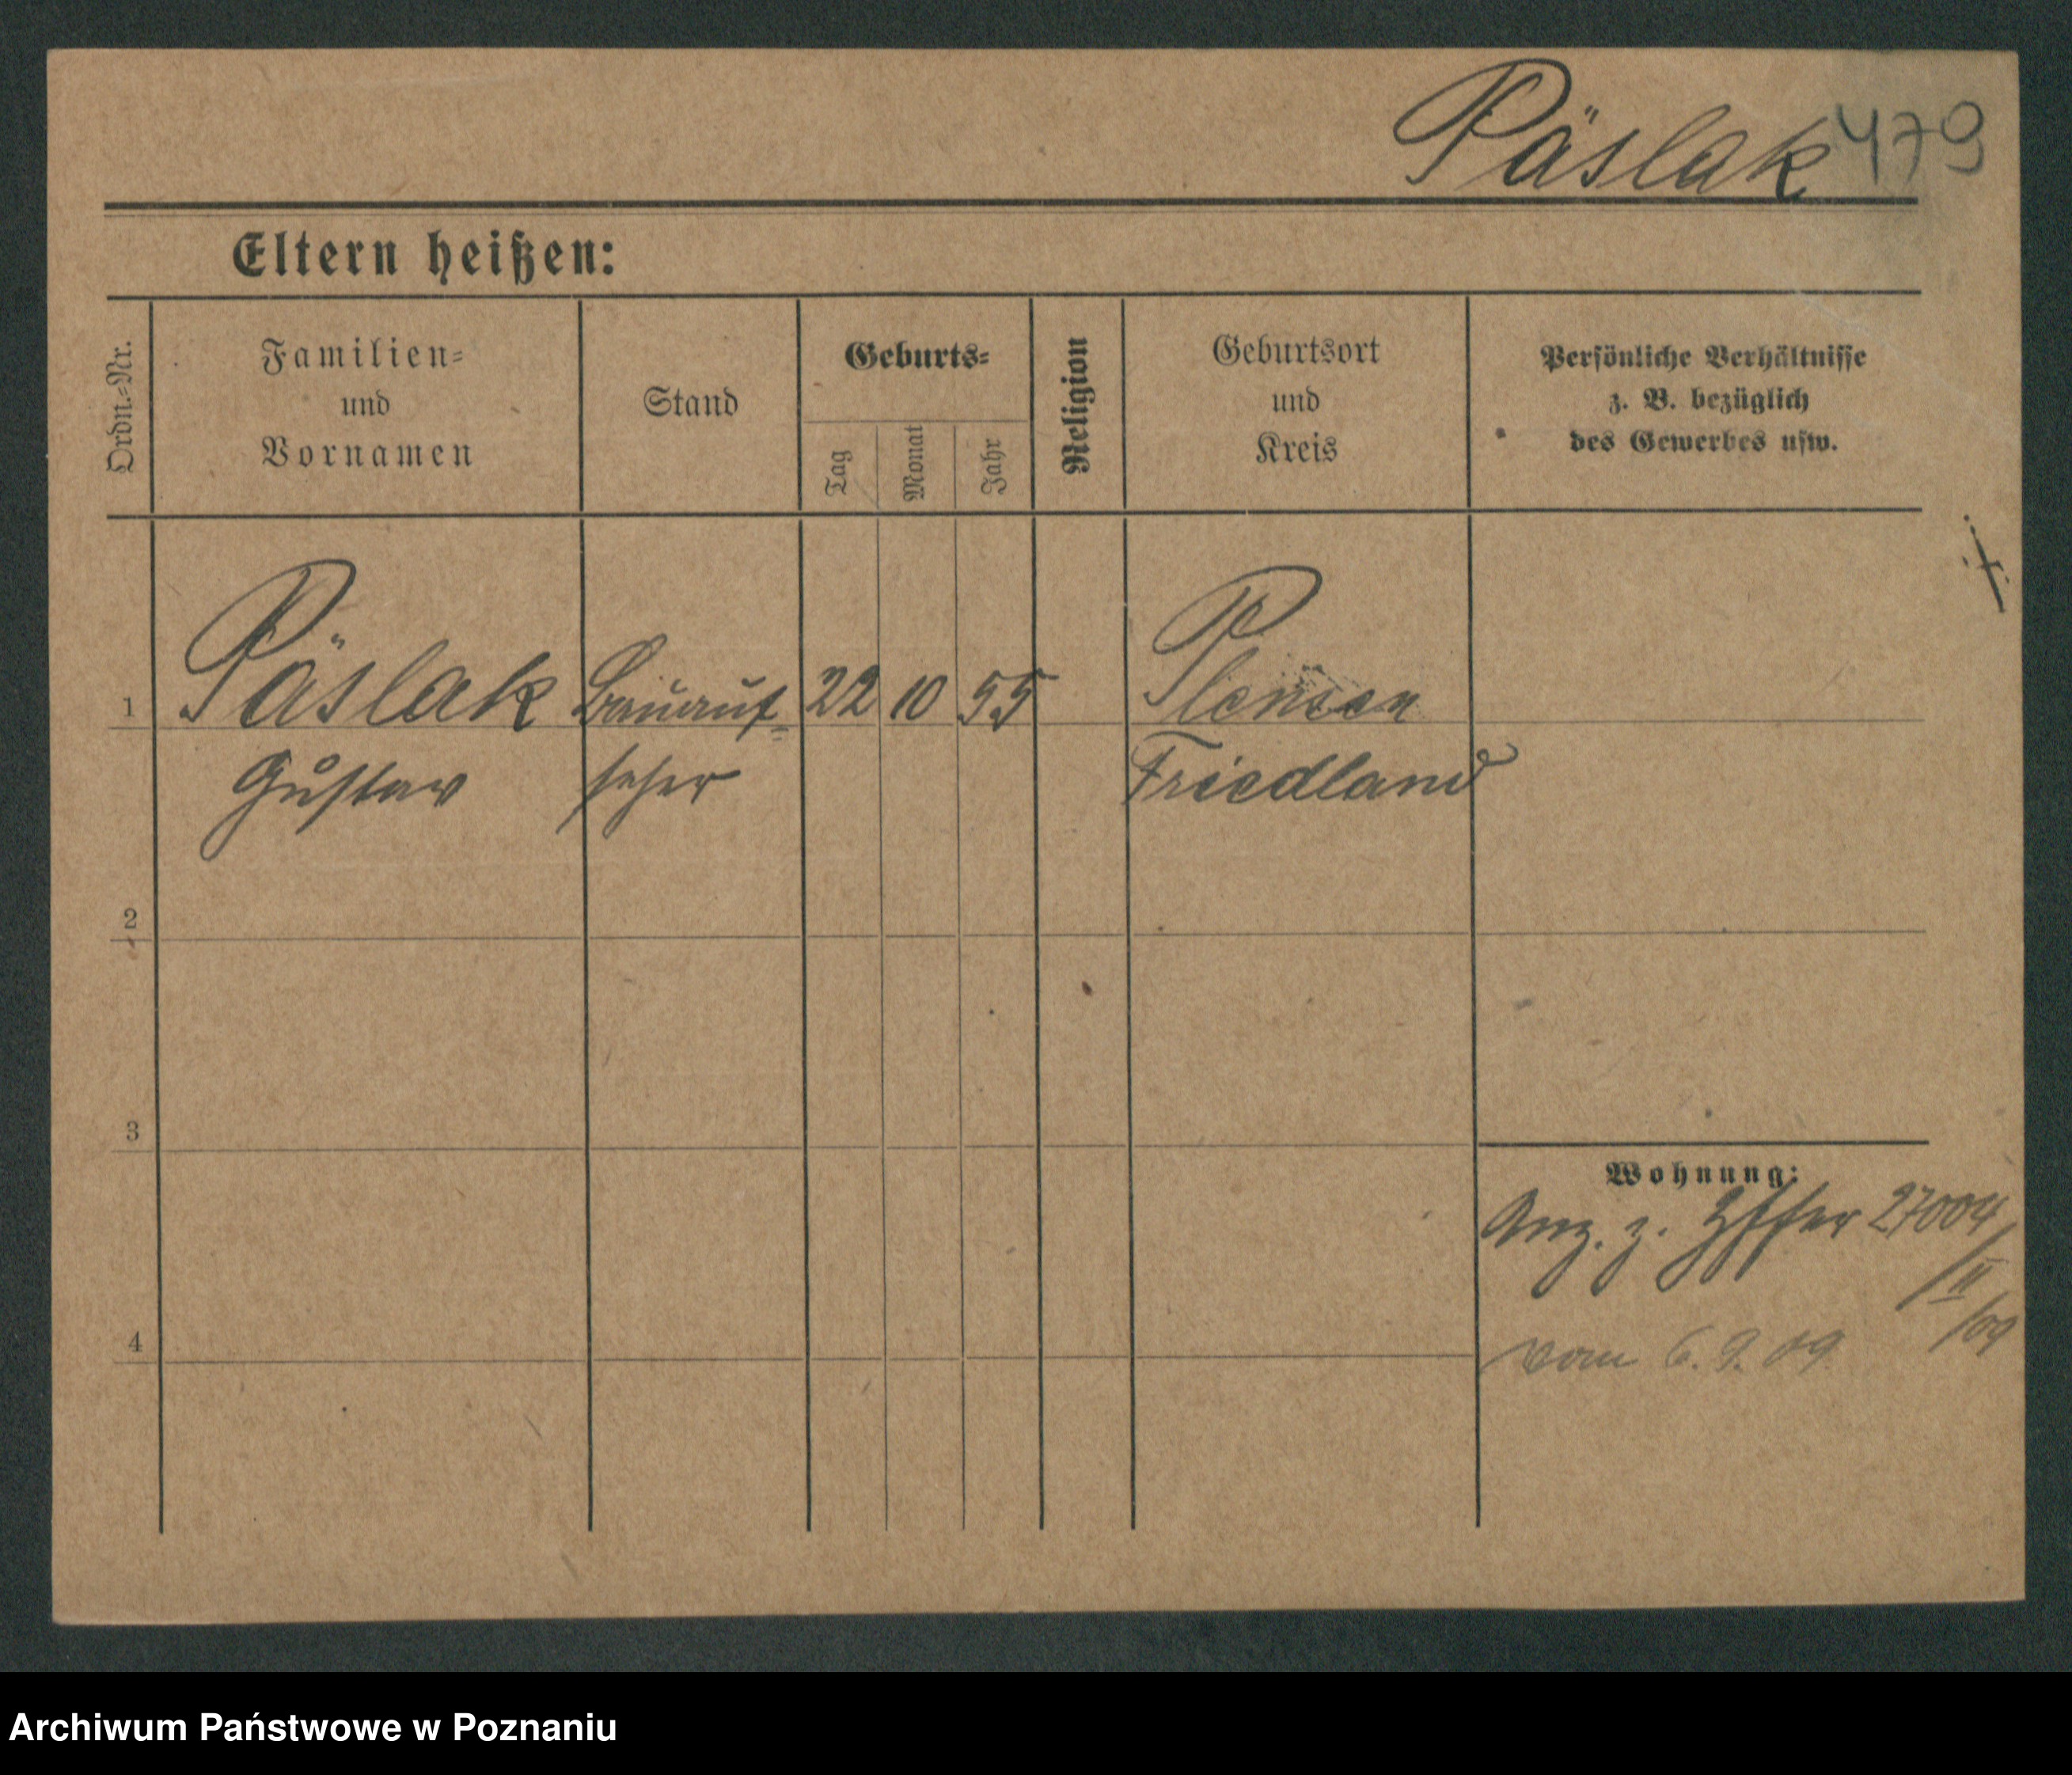 Päslak 479
Eltern heißen:
Ordn.-Nr.
Familien- und Vornamen
Stand
Geburts-
Tag
Monat
Jahr
Religion
Geburtsort und Kreis
Persönliche Verhältnisse
z. B. bezüglich
des Gewerbes usw.
1 Päslak Bauauf- 22 10 55
Gustav seher Friedland
2
3
Wohnung:
Anz. z. 27004
/II
/09
4
vom 6. 9. 09
Archiwum Państwowe w Poznaniu